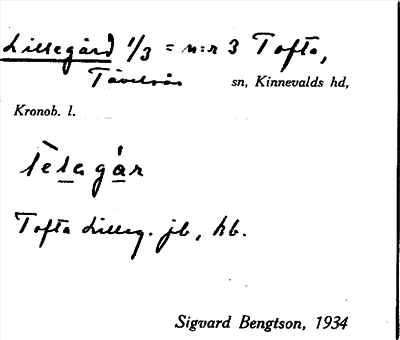 Lillegård 1/3 = n:r 3 Tofta,
Tävelsås sn, Kinnevalds hd,
Kronob. l.
Tofta Lilleg. jb, hb.
Sigvard Bengtson, 1934